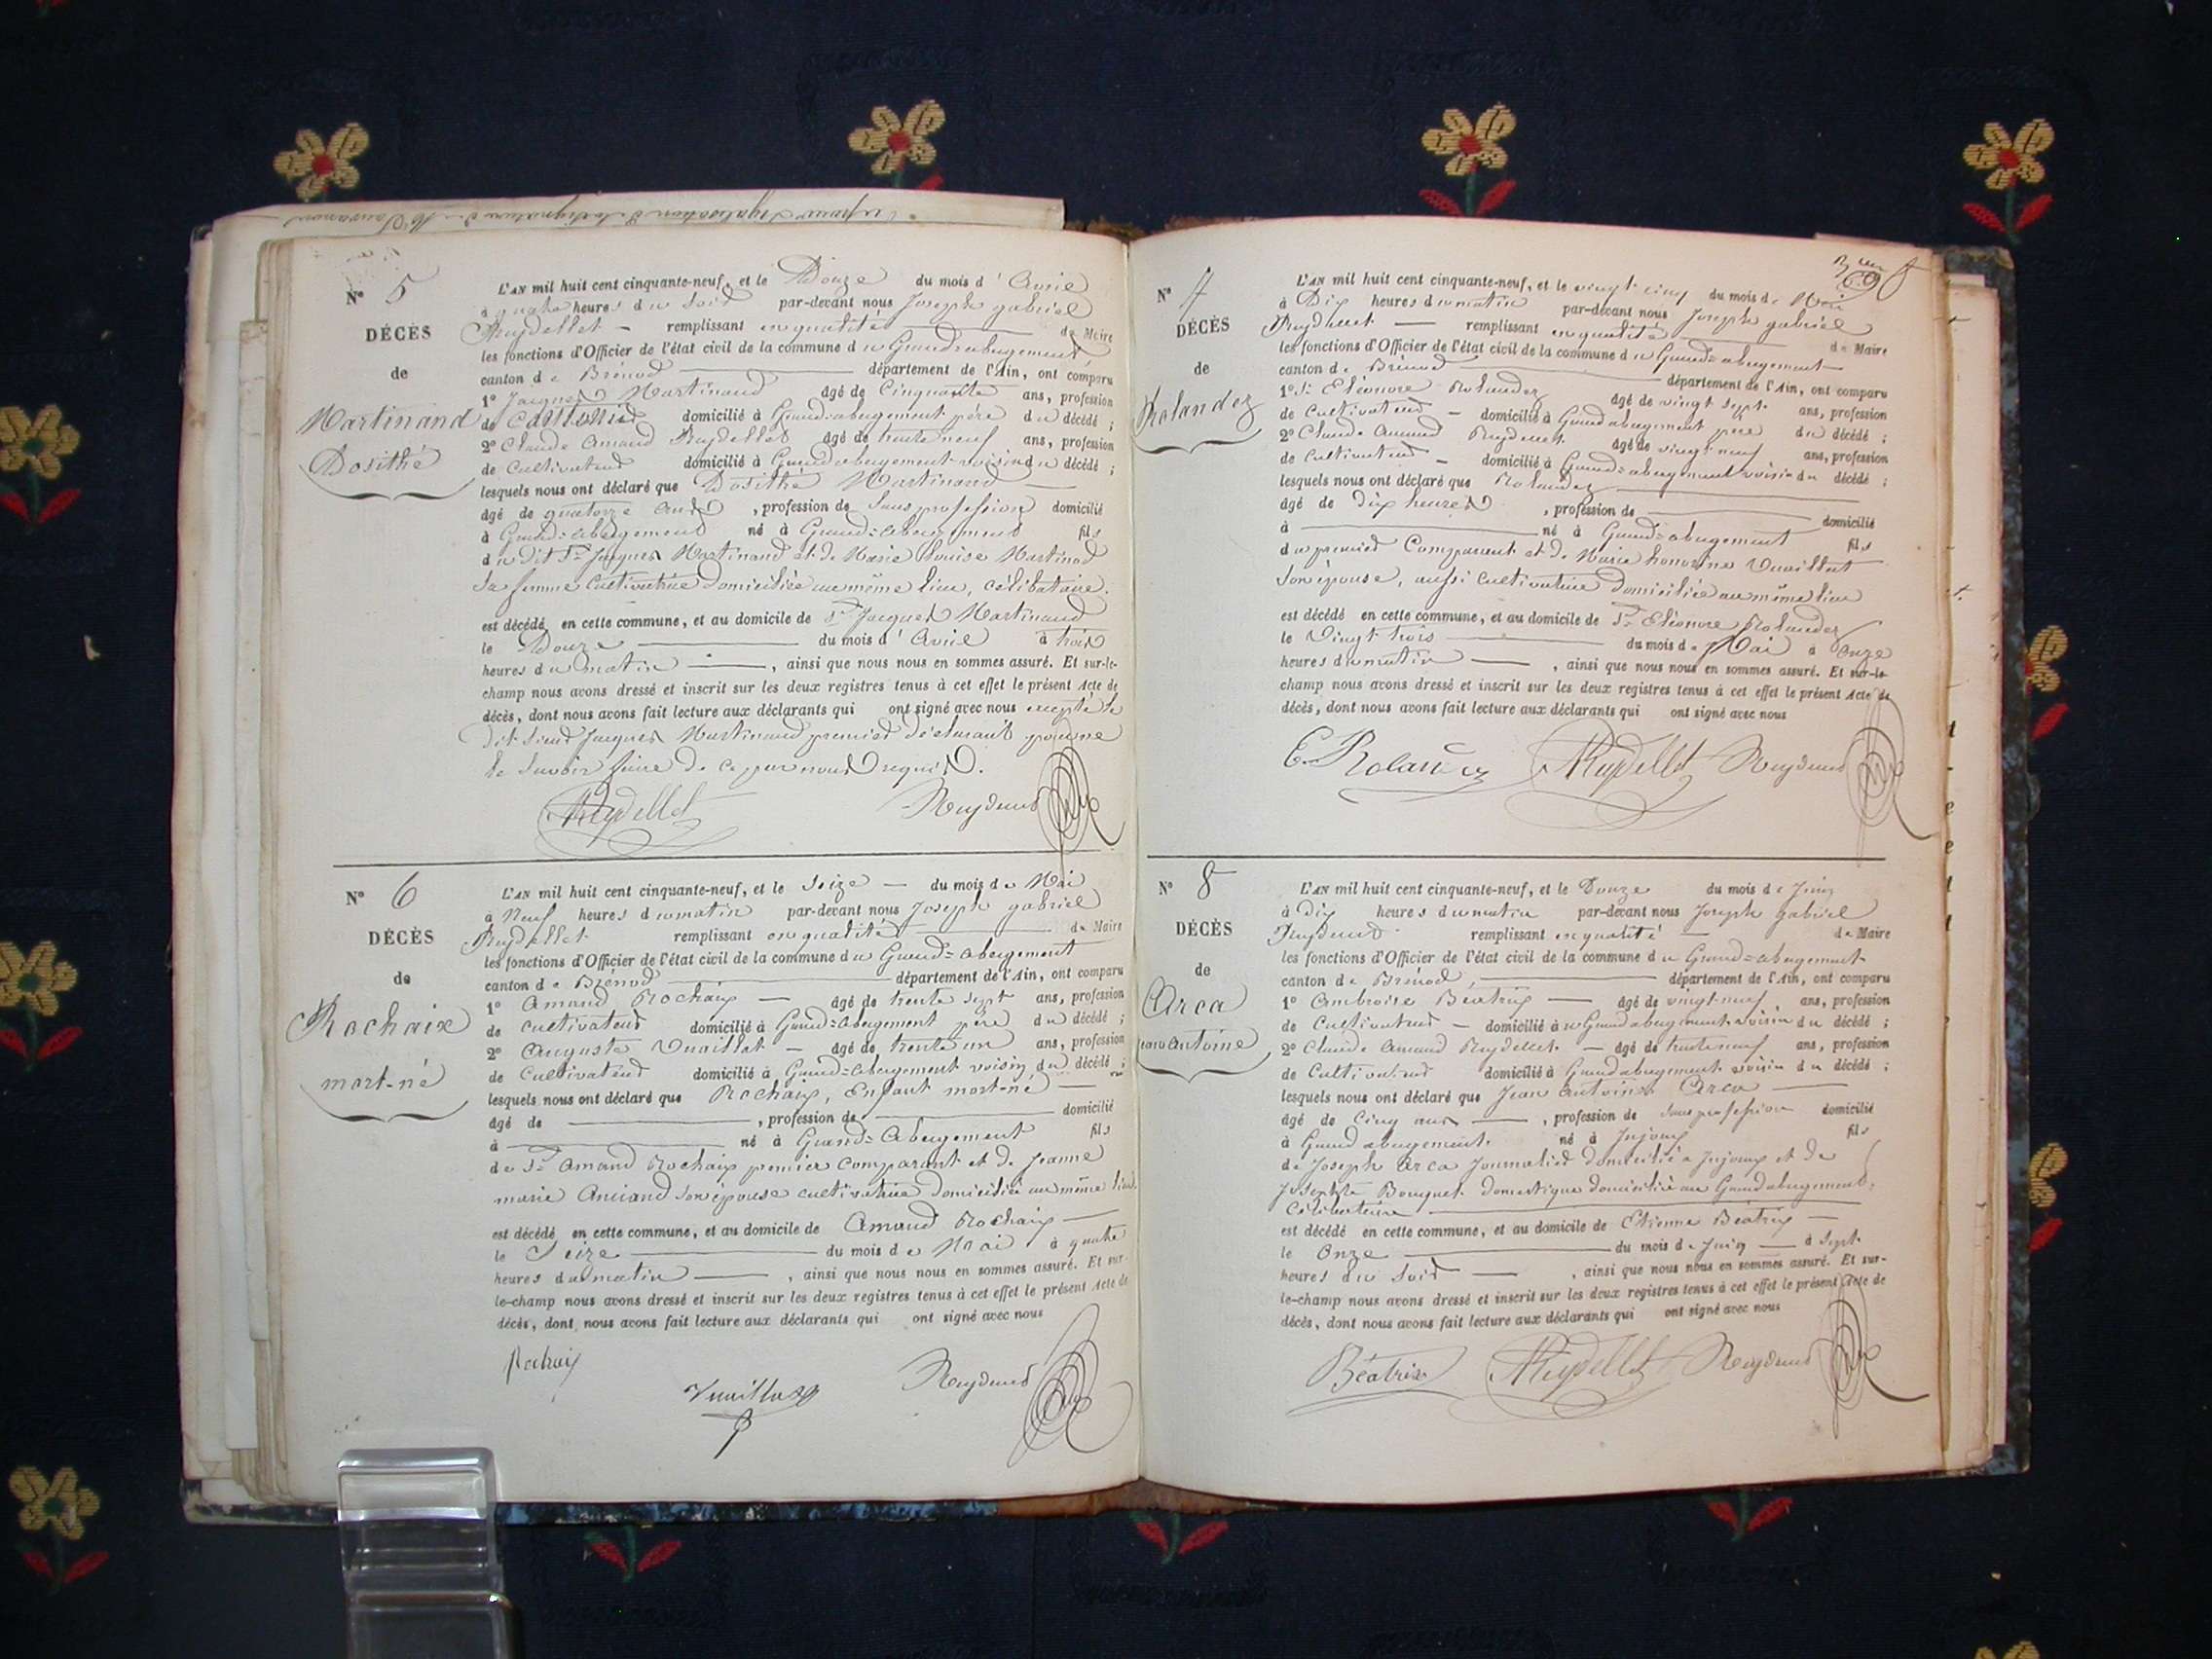 N° 5
DÉCÈS
de
Martinand
Dosithé
L'AN mil huit cent cinquante-neuf, et le Douze du mois d' Avril
à quatre heures du soir par-devant nous Joseph gabriel
Reydellet remplissant en qualité de Maire
les fonctions d'Officier de l'état civil de la commune du Grand=abergement
canton de Brénod département de l'Ain, ont comparu
1° Jacques Martinand âgé de Cinquante ans, profession
de domicilié à Grand=abergement père du décédé ;
2° Claude Amand Reydellet âgé de trente neuf ans, profession
de Cultivateur domicilié à Grand abergement voisin du décédé ;
lesquels nous ont déclaré que Dosithé Martinand
âgé de quatorze ans , profession de Sans profession domicilié
à Grand=abergement né à Grand=abergement fils
du dit Sr Jacques Martinand et de Marie Louise Martinod
Sa femme Cultivatrice Domiciliée au même lieu, célibataire.
est décédé en cette commune, et au domicile de Sr Jacques Martinand
le Douze du mois d' Avril à trois
heures du matin , ainsi que nous nous en sommes assuré. Et sur-le-
champ nous avons dressé et inscrit sur les deux registres tenus à cet effet le présent Acte de
décès, dont nous avons fait lecture aux déclarants qui ont signé avec nous excepté le
Dit Sieur Jacques Martinand premier déclarant pour ne
le savoir faire de ce par nous requis.
Reydellet Reydellet
N° 6
DÉCÈS
de
Rochaix
mort-né
L'AN mil huit cent cinquante-neuf, et le Seize du mois de Mai
à Neuf heures du matin par-devant nous Joseph gabriel
Reydellet remplissant en qualité de Maire
les fonctions d'Officier de l'état civil de la commune du Grand=abergement
canton de Brénod département de l'Ain, ont comparu
1° Amand Rochaix âgé de trente sept ans, profession
de cultivateur domicilié à Grand=abergement père du décédé ;
2° Auguste Vuaillat âgé de trente un ans, profession
de Cultivateur domicilié à Grand=abergement voisin du décédé ;
lesquels nous ont déclaré que Rochaix, Enfant mort-né
âgé de , profession de domicilié
à né à Grand=Abergement fils
de Sr Amand Rochaix premier comparant et de Jeanne
marie Anciand son épouse cultivatrice domiciliée au même lieu.
est décédé en cette commune, et au domicile de Amand Rochaix
le Seize du mois de Mai à quatre
heures du matin , ainsi que nous nous en sommes assuré. Et sur-
le-champ nous avons dressé et inscrit sur les deux registres tenus à cet effet le présent Acte de
décès, dont nous avons fait lecture aux déclarants qui ont signé avec nous
Rochaix
Vuaillat Reydellet
N° 7
DÉCÈS
de
Rolandez
L'AN mil huit cent cinquante-neuf, et le vingt cinq du mois de Mai
à Dix heures du matin par-devant nous Joseph gabriel
Reydellet remplissant en qualité de Maire
les fonctions d'Officier de l'état civil de la commune du Grand=abergement
canton de Brénod département de l'Ain, ont comparu
1° Sr Eléonore Rolandez âgé de vingt sept ans, profession
de Cultivateur domicilié à Grand abergement père du décédé ;
2° Claude Amand Reydellet âgé de vingt neuf ans, profession
de Cultivateur domicilié à Grand=abergement voisin du décédé ;
lesquels nous ont déclaré que Rolandez
âgé de dix heures , profession de domicilié
à né à Grand=abergement fils
du premier Comparant et de Marie honorine Vuaillat
son épouse, aussi cultivatrice domiciliée au même lieu
est décédé en cette commune, et au domicile de Sr Eléonore Rolandez
le Vingt trois du mois de Mai à Onze
heures du matin , ainsi que nous nous en sommes assuré. Et sur-le-
champ nous avons dressé et inscrit sur les deux registres tenus à cet effet le présent Acte de
décès, dont nous avons fait lecture aux déclarants qui ont signé avec nous
E. Rolandez Reydellet Reydellet
N° 8
DÉCÈS
de
Arca
Jean Antoine
L'AN mil huit cent cinquante-neuf, et le Douze du mois de Juin
à dix heures du matin par-devant nous Joseph Gabriel
Reydellet remplissant en qualité de Maire
les fonctions d'Officier de l'état civil de la commune du Grand=abergement
canton de Brénod, département de l'Ain, ont comparu
1° Ambroise Béatrix âgé de vingt-neuf ans, profession
de Cultivateur domicilié à Grand abergement voisin du décédé ;
2° Claude Amand Reydellet âgé de trente neuf ans, profession
de Cultivateur domicilié à Grand abergement voisin du décédé ;
lesquels nous ont déclaré que Jean Antoine Arca
âgé de Cinq ans , profession de Sans profession domicilié
à Grand abergement né à Injoux fils
de Joseph Arca Journalier domicilié à Injoux et de
Josephte Bouquet domestique domiciliée au Grand abergement,
Célibataire
est décédé en cette commune, et au domicile de Etienne Béatrix
le Onze du mois de Juin à Sept
heures du Soir , ainsi que nous nous en sommes assuré. Et sur-
le-champ nous avons dressé et inscrit sur les deux registres tenus à cet effet le présent Acte de
décès, dont nous avons fait lecture aux déclarants qui ont signé avec nous
Béatrix Reydellet Reydellet